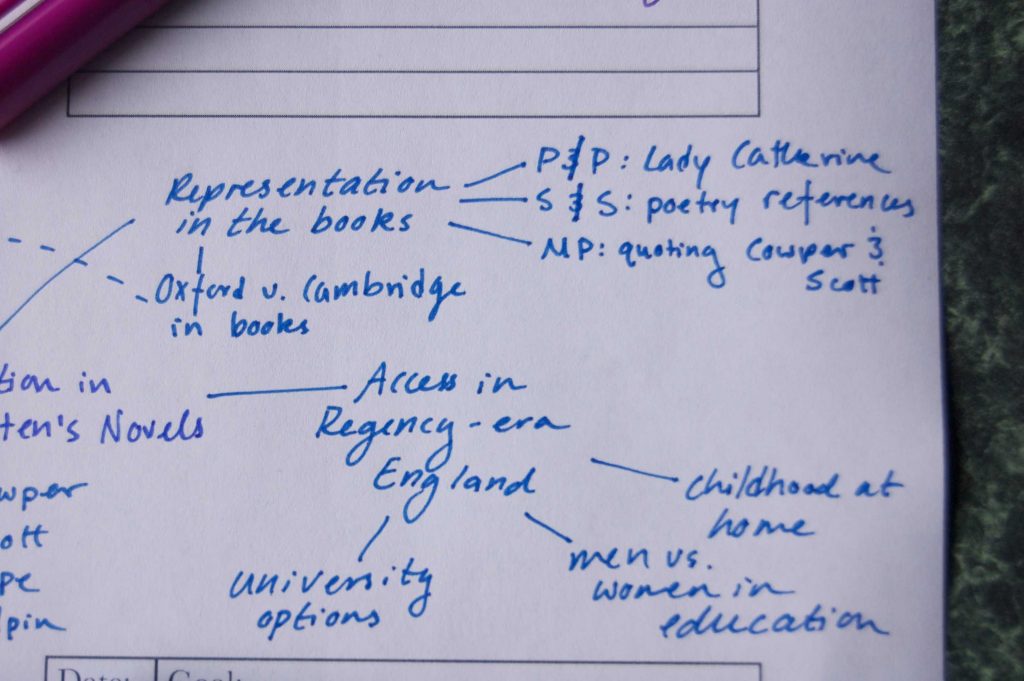 Representation
in the books
P & P: Lady Catherine
S & S: poetry references
MP: quoting Cowper &
Scott
Oxford v. Cambridge
in books
tion in
ten's Novels
Access in
Regency-era
England
wper
ott
pe
lpin
childhood at
home
men vs.
women in
education
university
options
Date:
Goal: